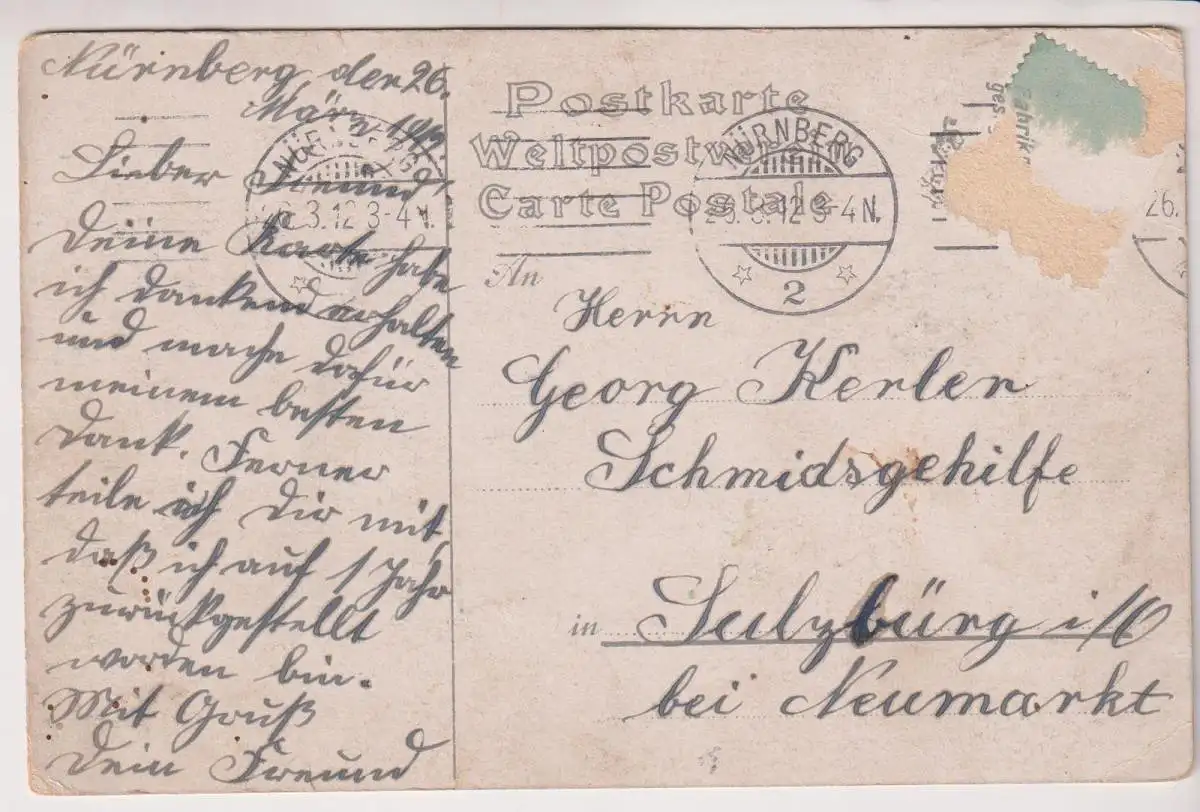 Nürnberg, den 26.
März 1912.
Lieber Freund!
Deine Karte habe
ich dankend erhalten
und mache dafür
meinem besten
Dank. Ferner
teile ich Dir mit,
daß ich auf 1 Jahr
zurückgestellt
worden bin.
Mit Gruß
Dein Freund
Postkarte
Weltpostverein
Carte Postale
NÜRNBERG
26.3.12 3-4N.
2
NÜRNBERG
26.3.12 3-4N.
26.
An
Herrn
Georg Kerler
Schmidsgehilfe
in Sulzbürg i/O
bei Neumarkt